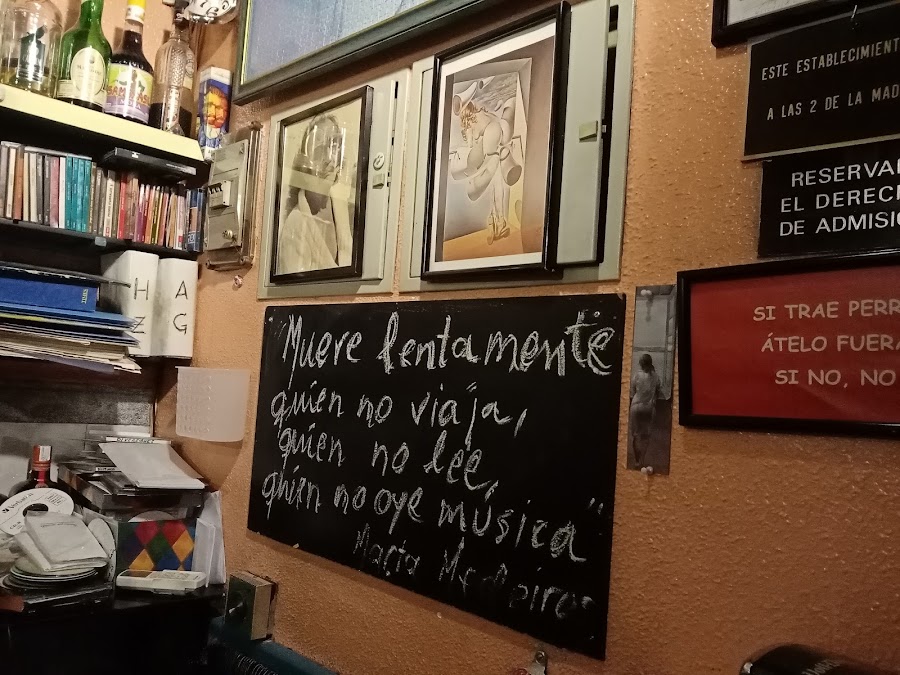 "Muere lentamente
quien no viaja,
quien no lee,
quien no oye música"
Marta Medeiros
ESTE ESTABLECIMIENT
A LAS 2 DE LA MAD
RESERVA
EL DEREC
DE ADMISIO
SI TRAE PERR
ÁTELO FUERA
SI NO, NO
H A
Z G